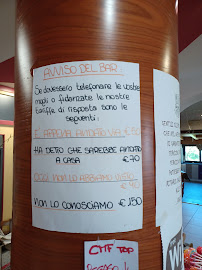 AVVISO DEL BAR
Se dovessero telefonare le vostre
mogli o fidanzate le nostre
tariffe di risposta sono le
seguenti:
E' APPENA ANDATO VIA €50
HA DETTO CHE SAREBBE ANDATO
A CASA €70
OGGI NON LO ABBIAMO VISTO
€90
NON LO CONOSCIAMO €150
CTF TOP